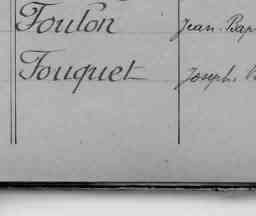 Foulon Jean-Bap
Fouquet Joseph